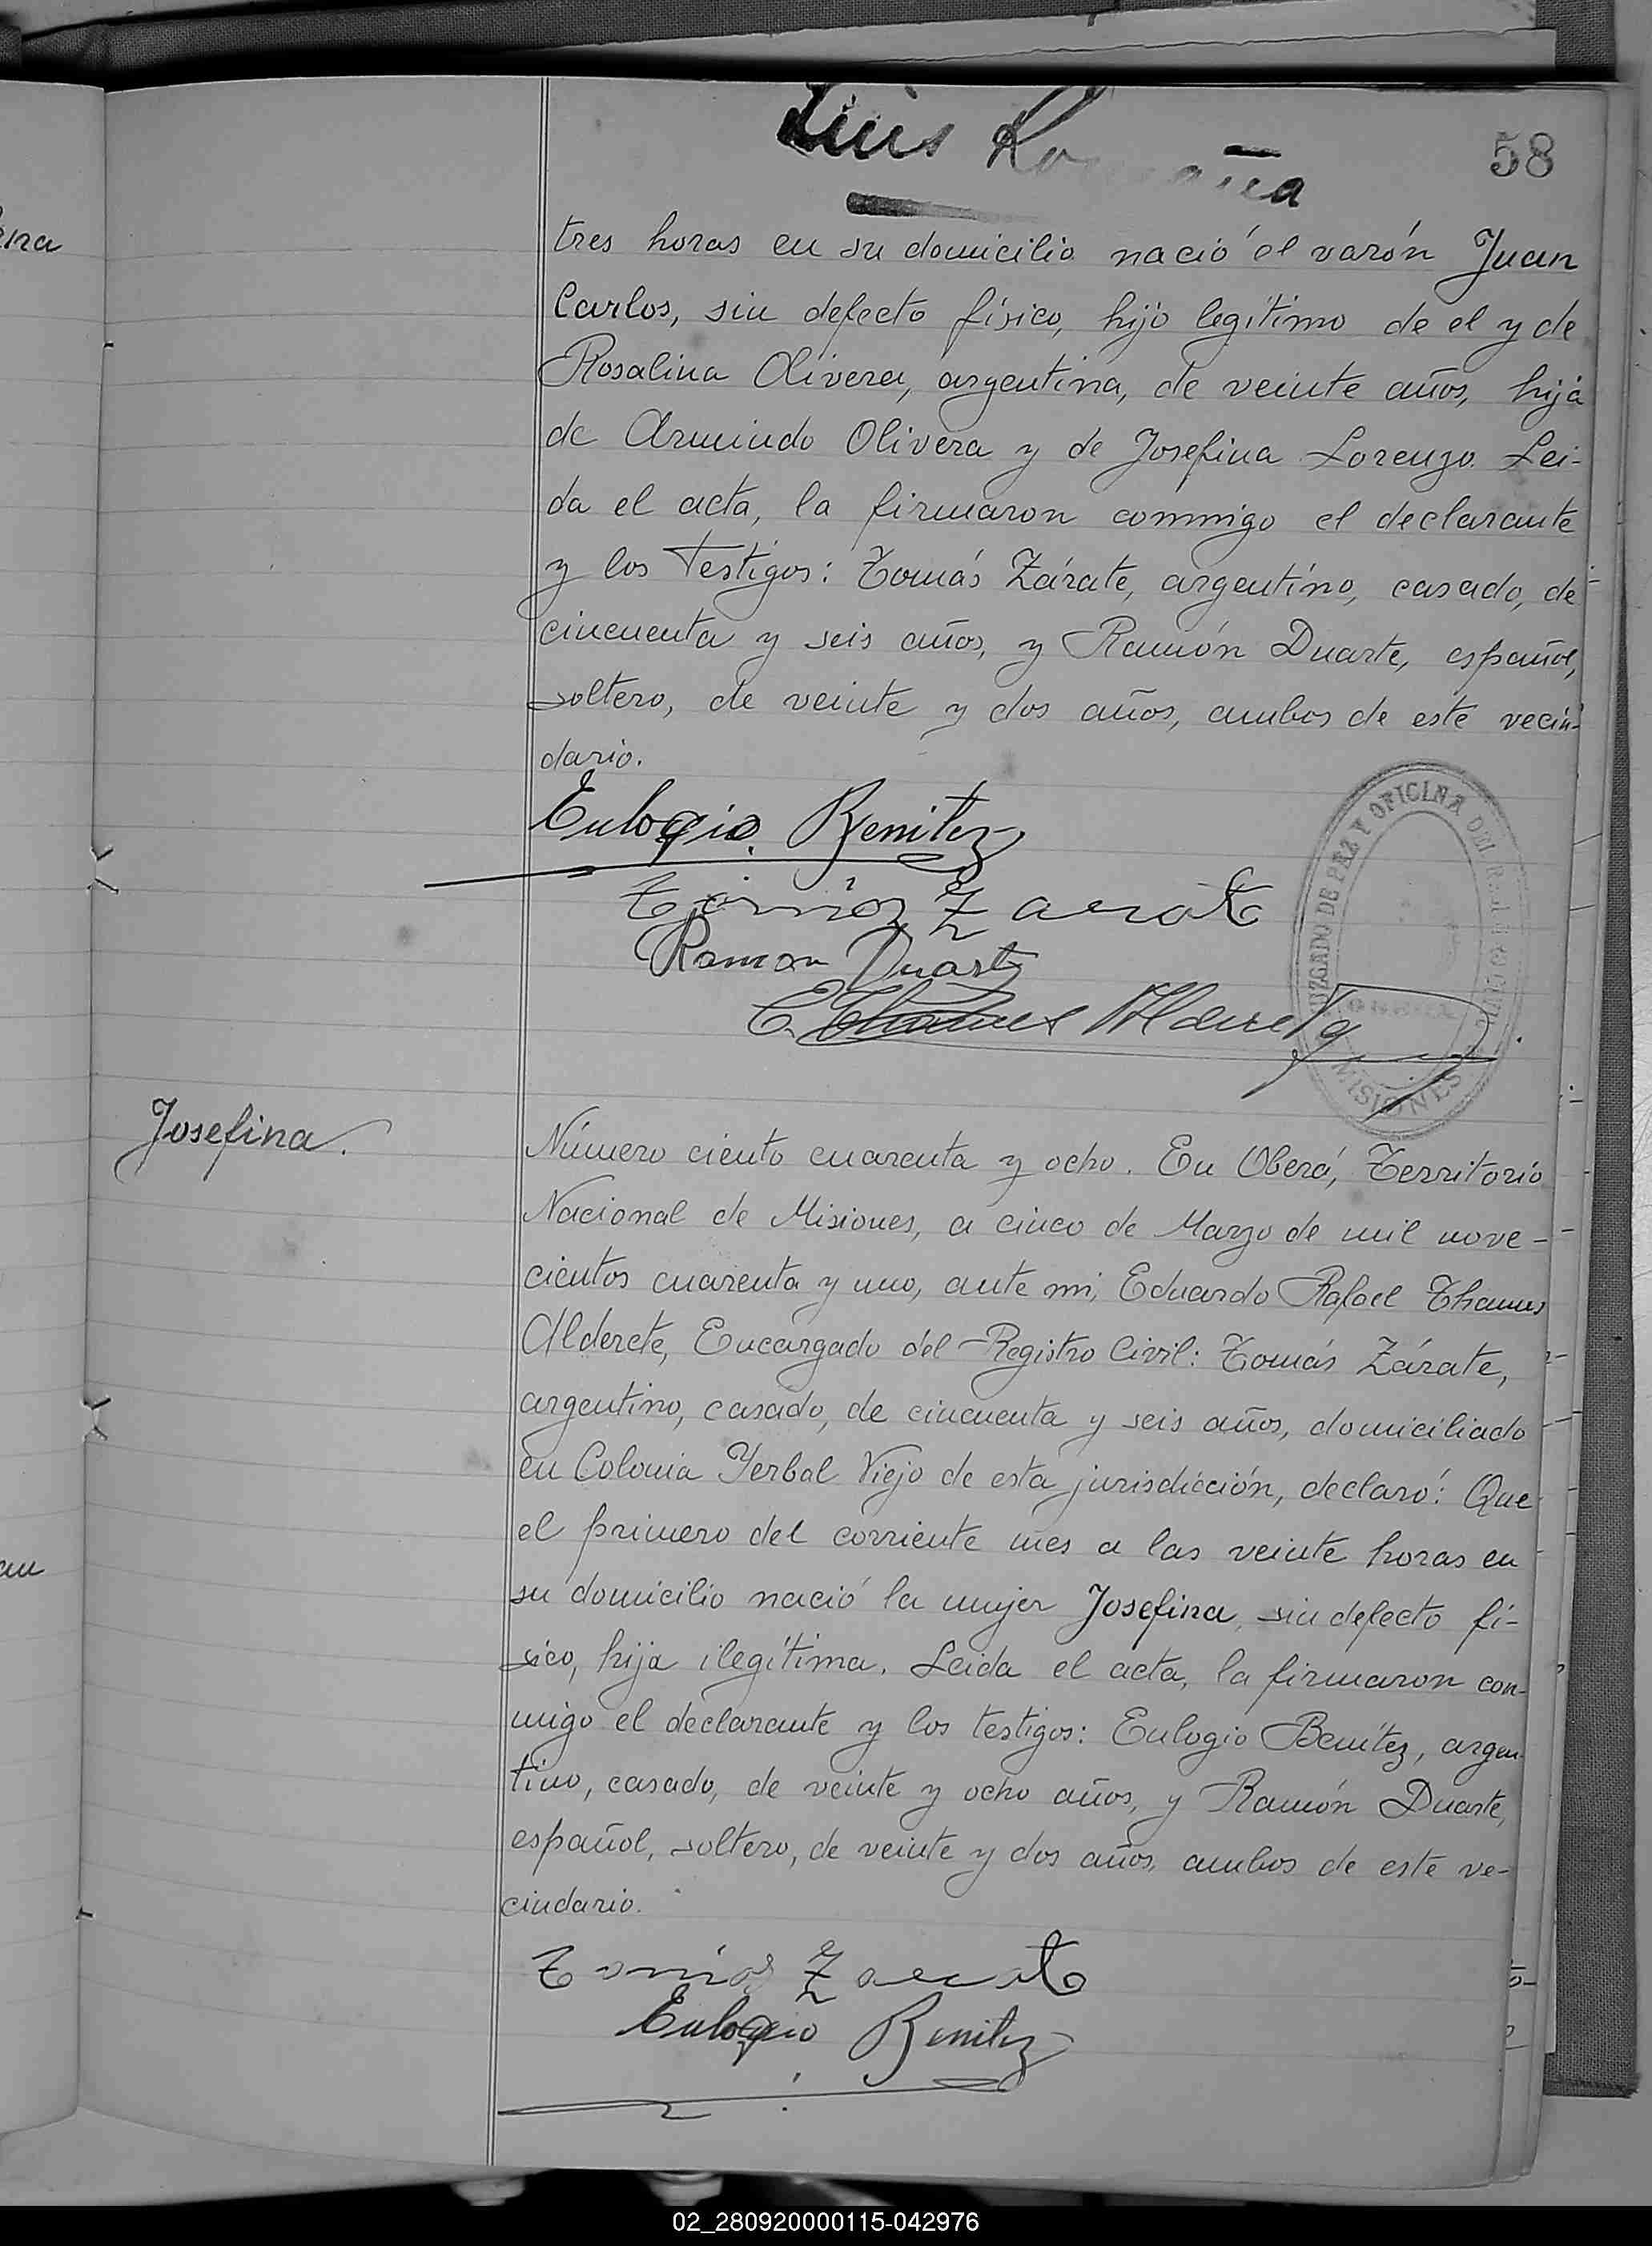 Luis
58
tres horas en su domicilio nació el varón Juan
Carlos, sin defecto físico, hijo legítimo de el y de
Rosalina Olivera, argentina, de veinte años, hija
de Armindo Olivera y de Josefina Lorenzo. Lei-
da el acta, la firmaron conmigo el declarante
y los testigos: Tomás Zárate, argentino, casado, de
cincuenta y seis años, y Ramón Duarte, español,
soltero, de veinte y dos años, ambos de este vecin-
dario.
Eulogio Benitez
Tomás Zarate
Ramon Duarte
JUZGADO DE PAZ Y OFICINA DEL REGISTRO CIVIL
MISIONES
Josefina.
Número ciento cuarenta y ocho. En Oberá, Territorio
Nacional de Misiones, a cinco de Marzo de mil nove-
cientos cuarenta y uno, ante mi, Eduardo Rafael Thames
Alderete, Encargado del Registro Civil: Tomás Zárate,
argentino, casado, de cincuenta y seis años, domiciliado
en Colonia Yerbal Viejo de esta jurisdicción, declaró: Que
el primero del corriente mes a las veinte horas en
su domicilio nació la mujer Josefina, sin defecto fí-
sico, hija ilegítima. Leida el acta, la firmaron con-
migo el declarante y los testigos: Eulogio Benítez, argen-
tino, casado, de veinte y ocho años, y Ramón Duarte,
español, soltero, de veinte y dos años, ambos de este ve-
cindario.
Tomás Zarate
Eulogio Benitez
02_280920000115-042976